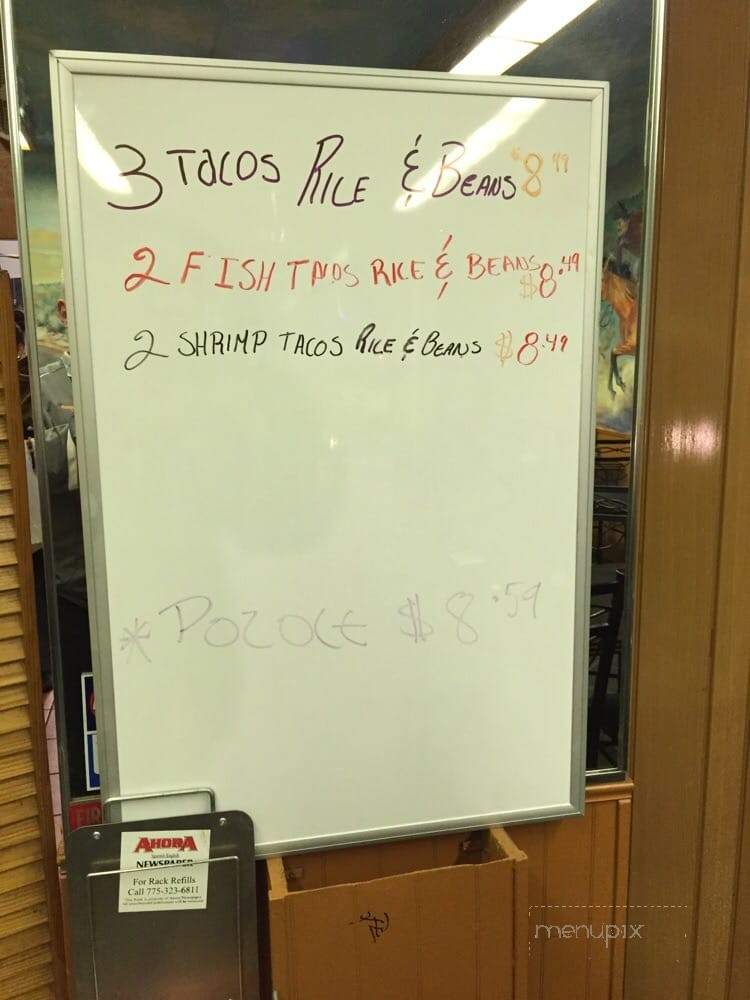 3 TACOS RICE & BEANS $8.49
2 FISH TACOS RICE & BEANS $8.49
2 SHRIMP TACOS RICE & BEANS $8.49
* POZOLE $8.59
AHORA
Spanish/English
NEWSPAPER
For Rack Refills
Call 775-323-6811
menupix